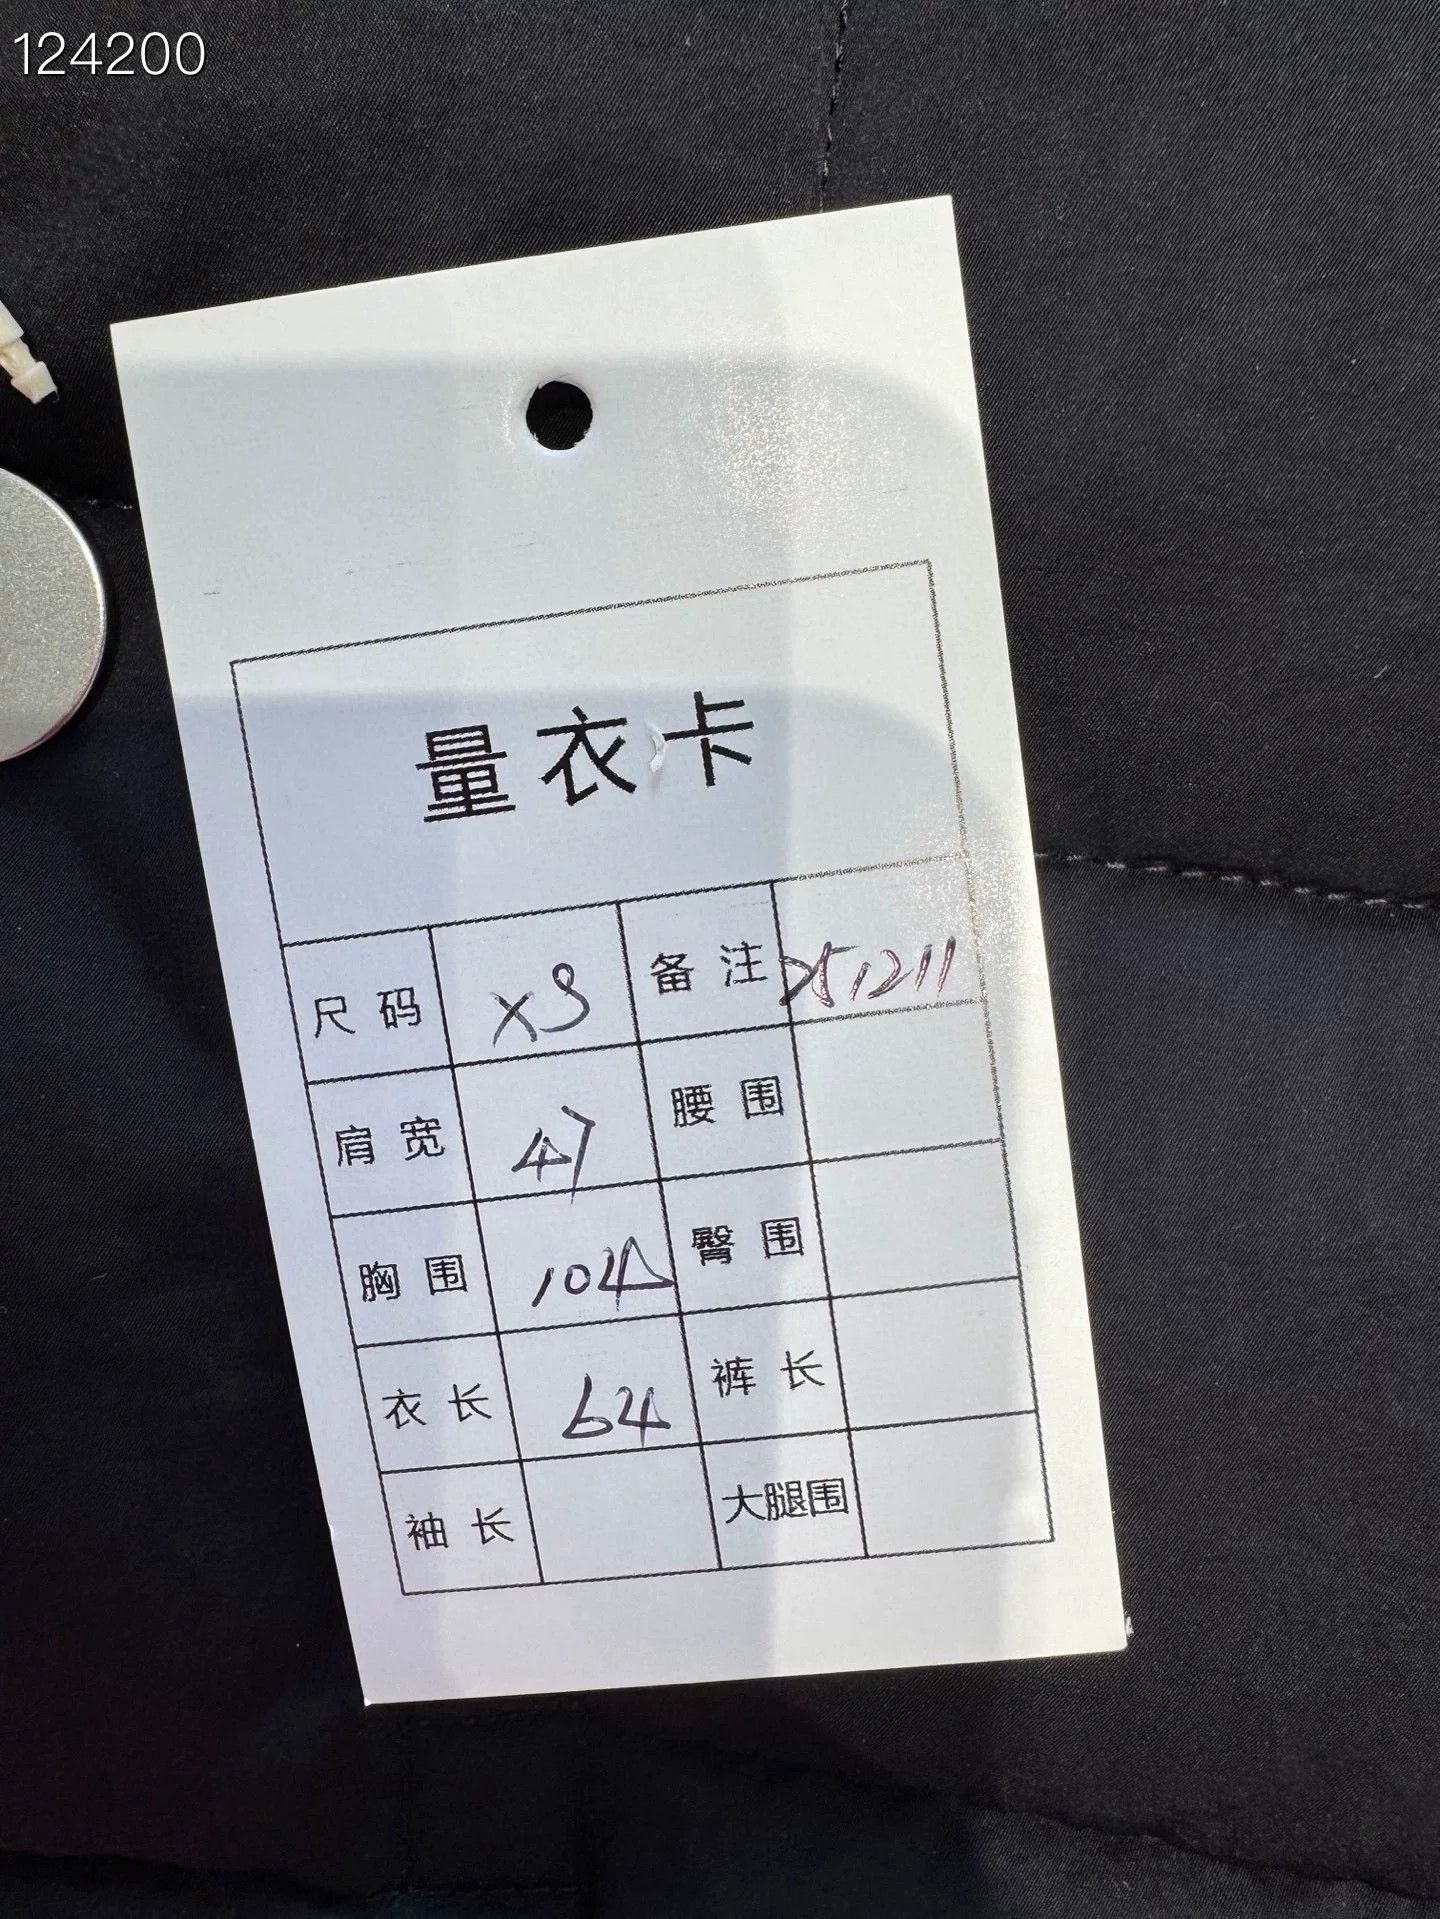 124200
量衣卡
尺码 XS 备注 251211
肩宽 47 腰围
胸围 104 臀围
衣长 64 裤长
袖长 大腿围